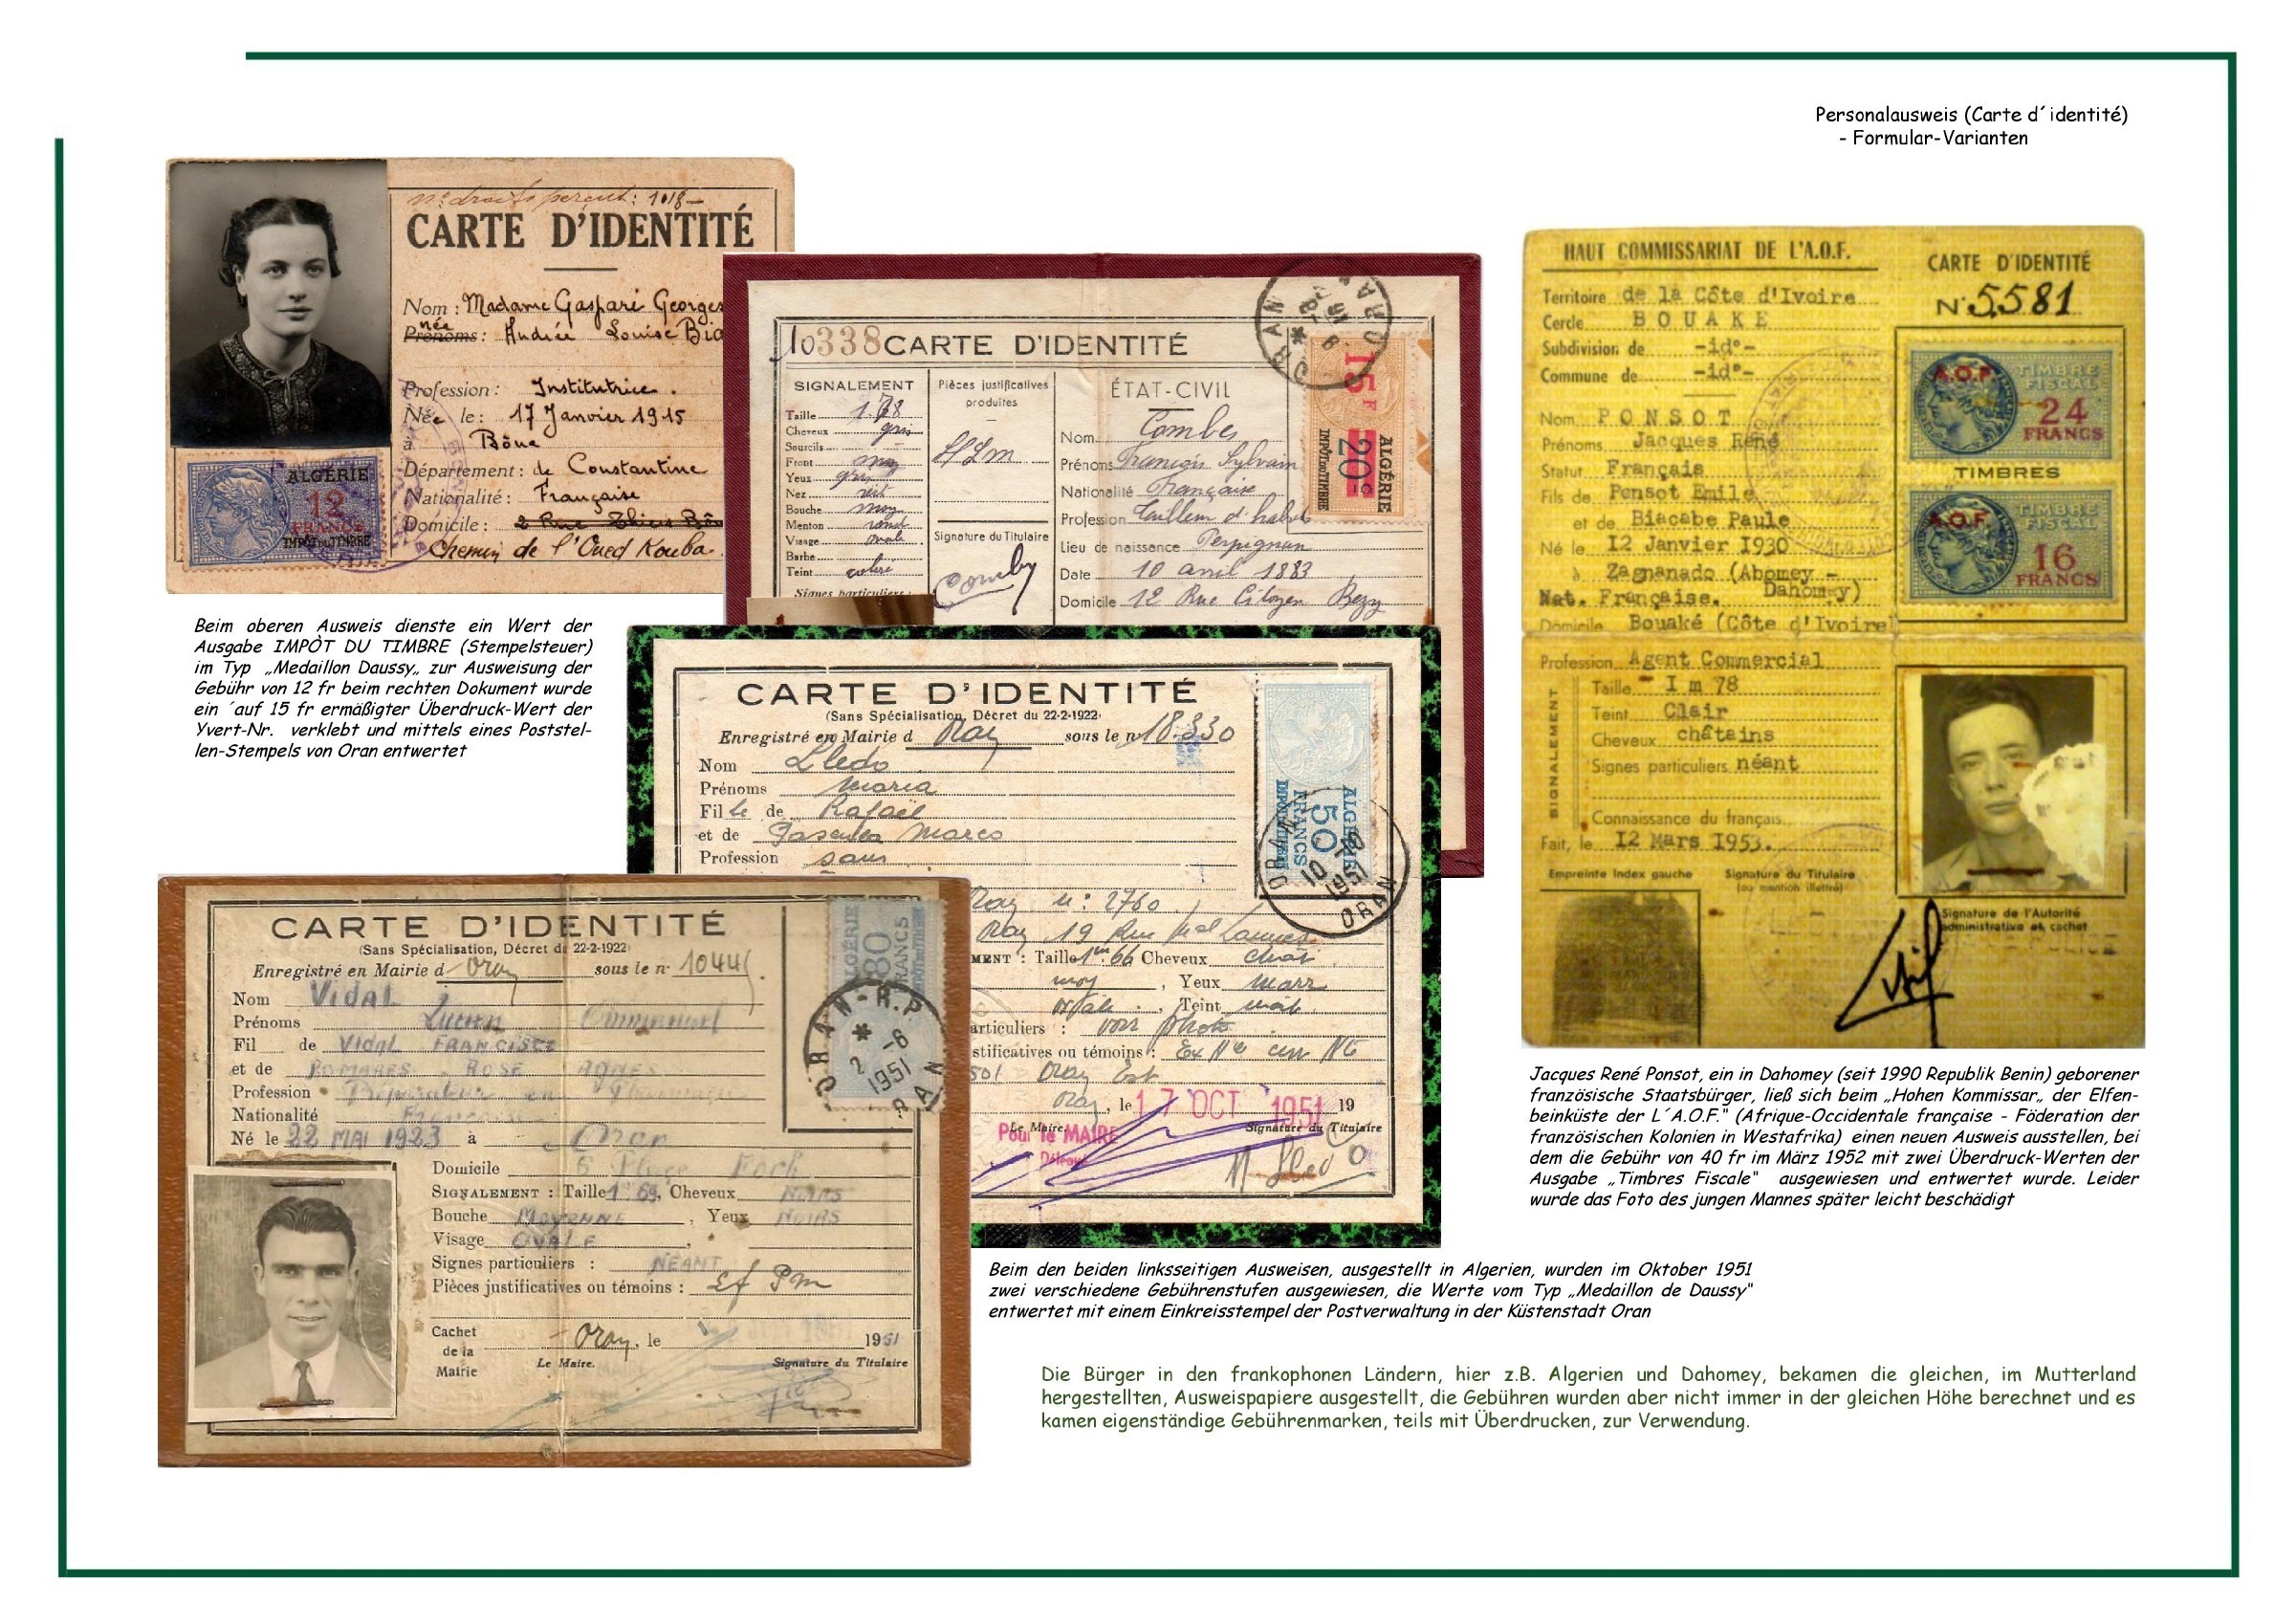 Personalausweis (Carte d´identité)
- Formular-Varianten
CARTE D'IDENTITÉ
Nom : Madame Gaspari Georges
née
Prénoms : Andrée Louise
Profession : Institutrice .
Née le : 17 Janvier 1915
à Bône
Département : de Constantine
Nationalité : Française
Domicile : 2 Rue Thiers
Chemin de l'Oued Kouba
ALGÉRIE
12
FRANCS
IMPÔT DU TIMBRE
Beim oberen Ausweis dienste ein Wert der
Ausgabe IMPÒT DU TIMBRE (Stempelsteuer)
im Typ „Medaillon Daussy„ zur Ausweisung der
Gebühr von 12 fr beim rechten Dokument wurde
ein ´auf 15 fr ermäßigter Überdruck-Wert der
Yvert-Nr. verklebt und mittels eines Poststel-
len-Stempels von Oran entwertet
10338 CARTE D'IDENTITÉ
SIGNALEMENT
Taille
Cheveux gris
Sourcils
Front moy
Yeux
Nez
Bouche moy
Menton rond
Visage ovale
Barbe
Teint
Signes particuliers :
Pièces justificatives
produites
Signature du Titulaire
ÉTAT-CIVIL
Nom Combes
Prénoms François Sylvain
Nationalité Française
Profession
Lieu de naissance Perpignan
Date 10 avril 1883
Domicile 12 Rue Citoyen Bezy
ORAN
15 F
20 c
ALGÉRIE
IMPÔT DU TIMBRE
CARTE D'IDENTITÉ
(Sans Spécialisation, Décret du 22-2-1922)
Enregistré en Mairie d Oran sous le n° 18.330
Nom Lledo
Prénoms Maria
Fille de Rafaël
et de Marco
Profession sans
19 Rue
MENT : Taille 1m 66 Cheveux
moy , Yeux
, Teint
articuliers : voir photo
stificatives ou témoins :
Oran , le 17 OCT 1951 19
Le Maire, Signature du Titulaire
Pour le MAIRE
ALGÉRIE
50
FRANCS
ORAN
10
1951
ORAN
CARTE D'IDENTITÉ
(Sans Spécialisation, Décret du 22-2-1922)
Enregistré en Mairie d Oran sous le n°
Nom Vidal
Prénoms Lucien Emmanuel
Fil de Vidal
et de ROSE AGNES
Profession
Nationalité
Né le 22 MAI 1923 à Oran
Domicile 5 Place Foch
SIGNALEMENT : Taille 1m 69, Cheveux NOIRS
Bouche MOYENNE , Yeux NOIRS
Visage OVALE ,
Signes particuliers : NEANT
Pièces justificatives ou témoins :
Cachet
de la
Mairie
Oran, le 1951
Le Maire, Signature du Titulaire
ALGÉRIE
80
FRANCS
ORAN-R.P
2 -6
1951
HAUT COMMISSARIAT DE L'A.O.F.
Territoire de la Côte d'Ivoire
Cercle BOUAKE
Subdivision de -id°-
Commune de -id°-
Nom PONSOT
Prénoms Jacques René
Statut Français
Fils de Ponsot Emile
et de Biacabe Paule
Né le 12 Janvier 1930
à Zagnanado (Abomey -
Dahomey)
Nat. Française.
Domicile Bouaké (Côte d'Ivoire)
CARTE D'IDENTITÉ
N° 5581
A.O.F. TIMBRE
FISCAL
24
FRANCS
TIMBRES
A.O.F. TIMBRE
FISCAL
16
FRANCS
Profession Agent Commercial
SIGNALEMENT
Taille I m 78
Teint Clair
Cheveux châtains
Signes particuliers néant
Connaissance du français
Fait, le 12 Mars 1953.
Empreinte Index gauche
Signature du Titulaire
(ou mention illettré)
Signature de l'Autorité
administrative et cachet
Jacques René Ponsot, ein in Dahomey (seit 1990 Republik Benin) geborener
französische Staatsbürger, ließ sich beim „Hohen Kommissar„ der Elfen-
beinküste der L´A.O.F." (Afrique-Occidentale française - Föderation der
französischen Kolonien in Westafrika) einen neuen Ausweis ausstellen, bei
dem die Gebühr von 40 fr im März 1952 mit zwei Überdruck-Werten der
Ausgabe „Timbres Fiscale" ausgewiesen und entwertet wurde. Leider
wurde das Foto des jungen Mannes später leicht beschädigt
Beim den beiden linksseitigen Ausweisen, ausgestellt in Algerien, wurden im Oktober 1951
zwei verschiedene Gebührenstufen ausgewiesen, die Werte vom Typ „Medaillon de Daussy"
entwertet mit einem Einkreisstempel der Postverwaltung in der Küstenstadt Oran
Die Bürger in den frankophonen Ländern, hier z.B. Algerien und Dahomey, bekamen die gleichen, im Mutterland
hergestellten, Ausweispapiere ausgestellt, die Gebühren wurden aber nicht immer in der gleichen Höhe berechnet und es
kamen eigenständige Gebührenmarken, teils mit Überdrucken, zur Verwendung.